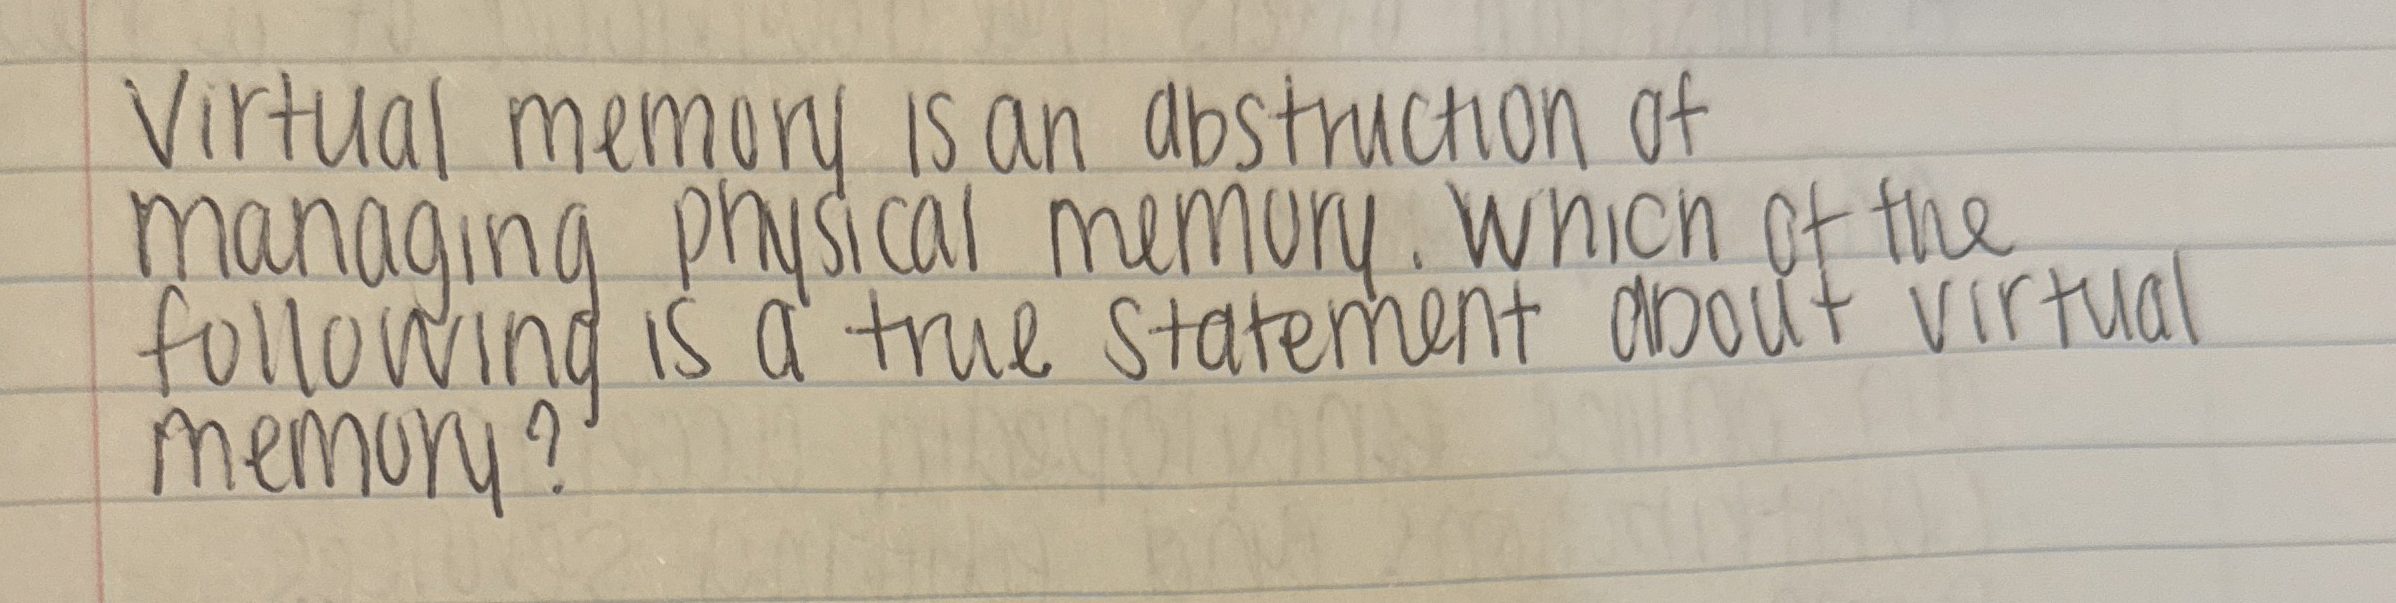 Virtual memory is an abstruction of
managing physical memory. Which of the
following is a true statement about virtual
memory?